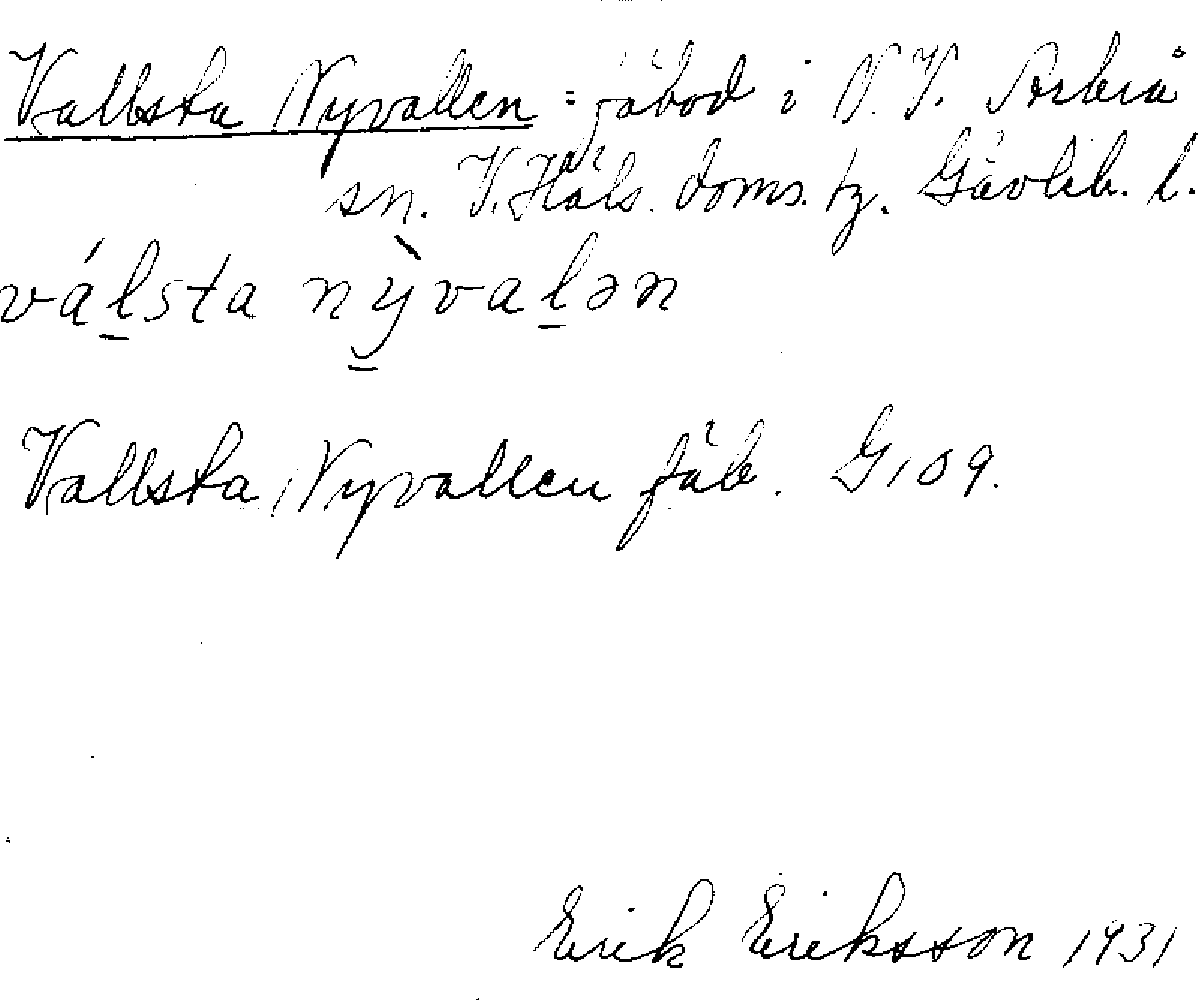 Vallsta Nyvallen = fäbod i N. V. Arbrå
sn. V. Häls. doms. tg. Gävleb. l.
válsta nỳvalən
Vallsta Nyvallen fäb. G109.
Erik Eriksson 1931